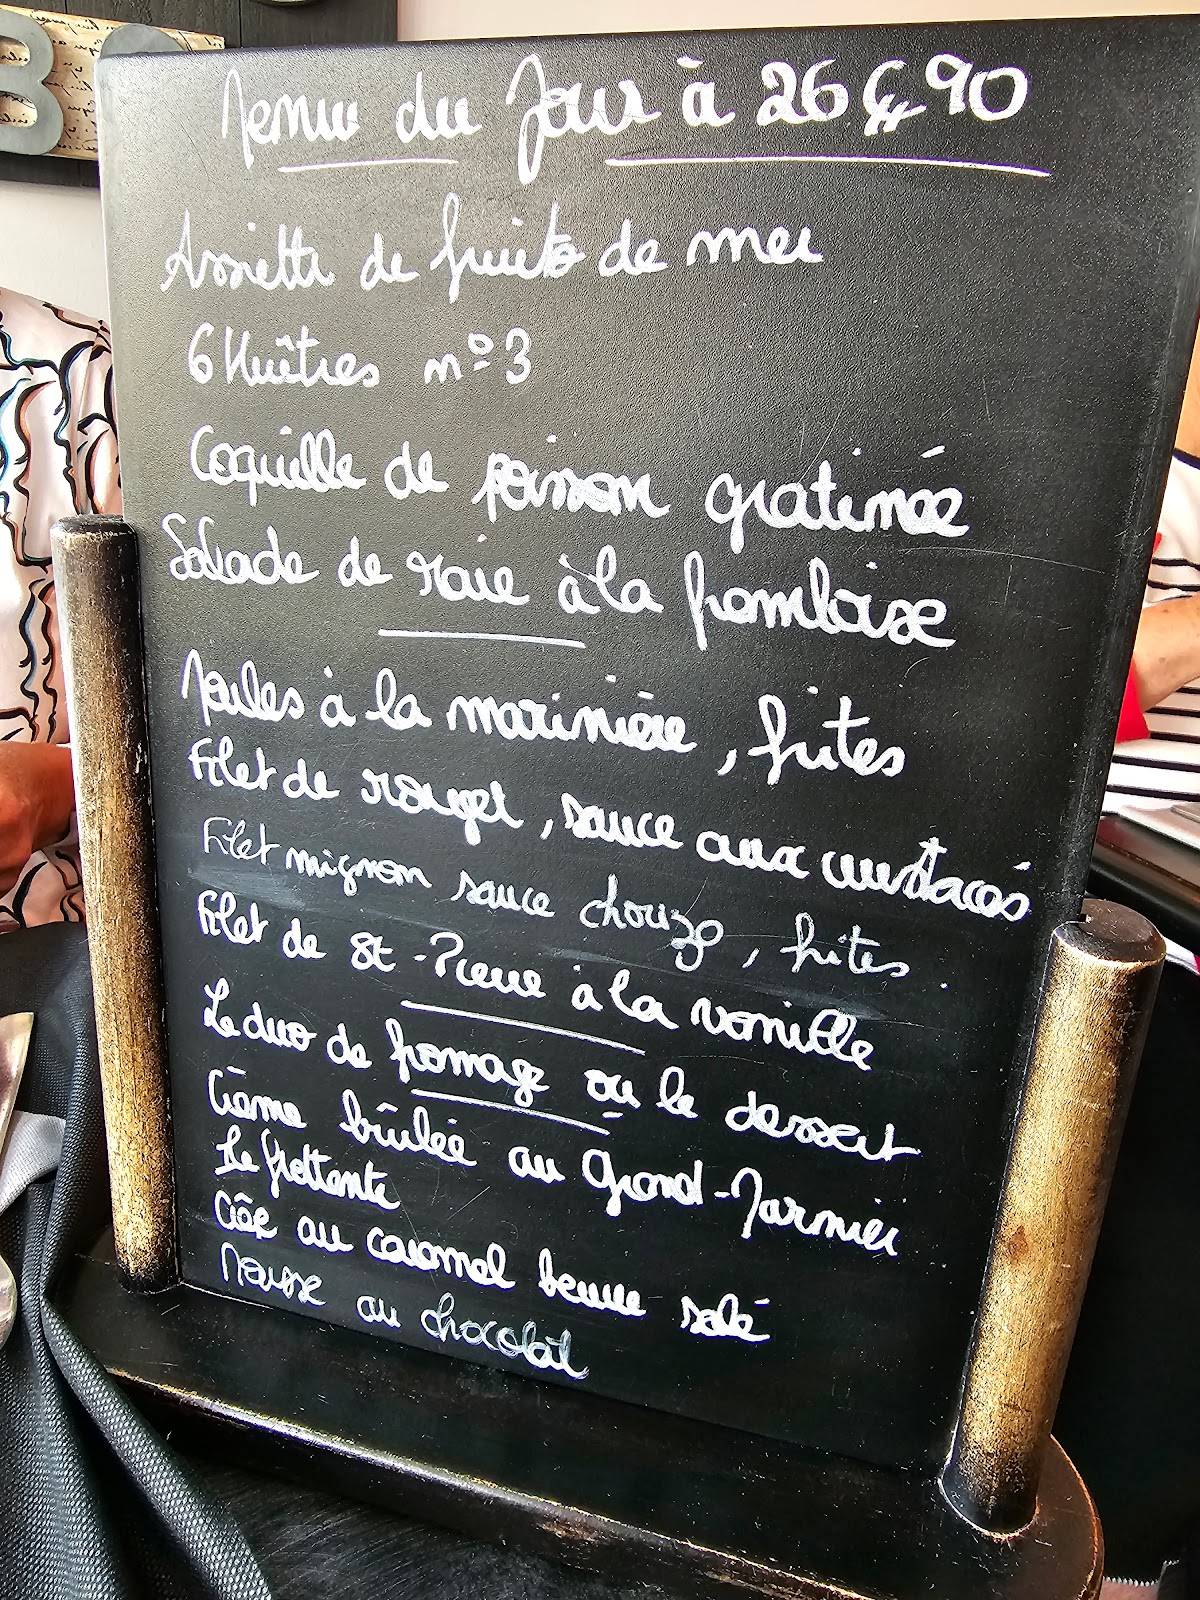 Menu du Jour à 26€90
Assiette de fruits de mer
6 Huîtres n°3
Coquille de poisson gratinée
Salade de raie à la framboise
Moules à la marinière, frites
Filet de rouget, sauce aux crustacés
Filet mignon sauce chorizo, frites.
Filet de St-Pierre à la vanille
Le duo de fromage ou le dessert
Crème brûlée au Grand-Marnier
Ile flottante
Crêpe au caramel beurre salé
Mousse au chocolat